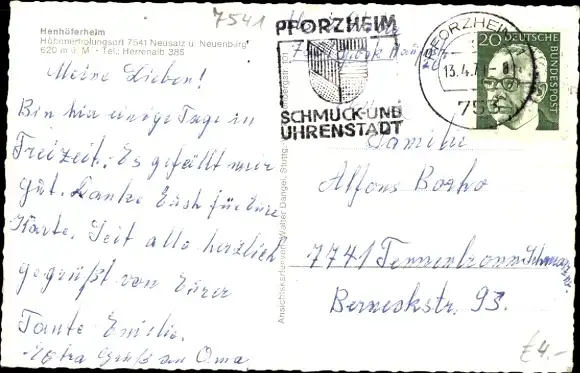 7541
Henhöferheim
Höhenerholungsort 7541 Neusatz ü. Neuenbürg
620 m ü. M · Tel.: Herrenalb 385
Meine Lieben!
Bin hir einige Tage zu
Freizeit. Es gefällt mir
gut. Danke Euch für Eure
Karte. Seit alle herzlich
gegrüßt von Eurer
Tante Emilie.
Extra Gruß an Oma
PFORZHEIM
SCHMUCK-UND
UHRENSTADT
PFORZHEIM
13.4.7
753
20
DEUTSCHE
BUNDESPOST
Ansichtskartenverlag Walter Dangel, Stuttg.
Familie
Alfons Borho
7741 Tennenbronn Schwarzw.
Berneckstr. 93.
€4.-